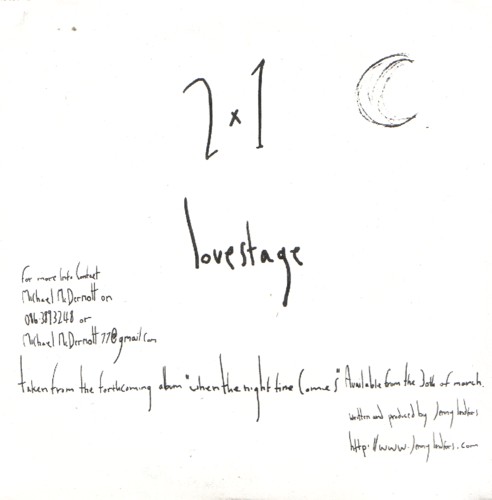 2 x 1
lovestage
For more Info Contact
Michael McDermott on
086-3893248 or
Michael McDermott 77@gmail.com
taken from the forthcoming album "when the night time Comes" Available from the 20th of march.
written and produced by Jenny
http://www.